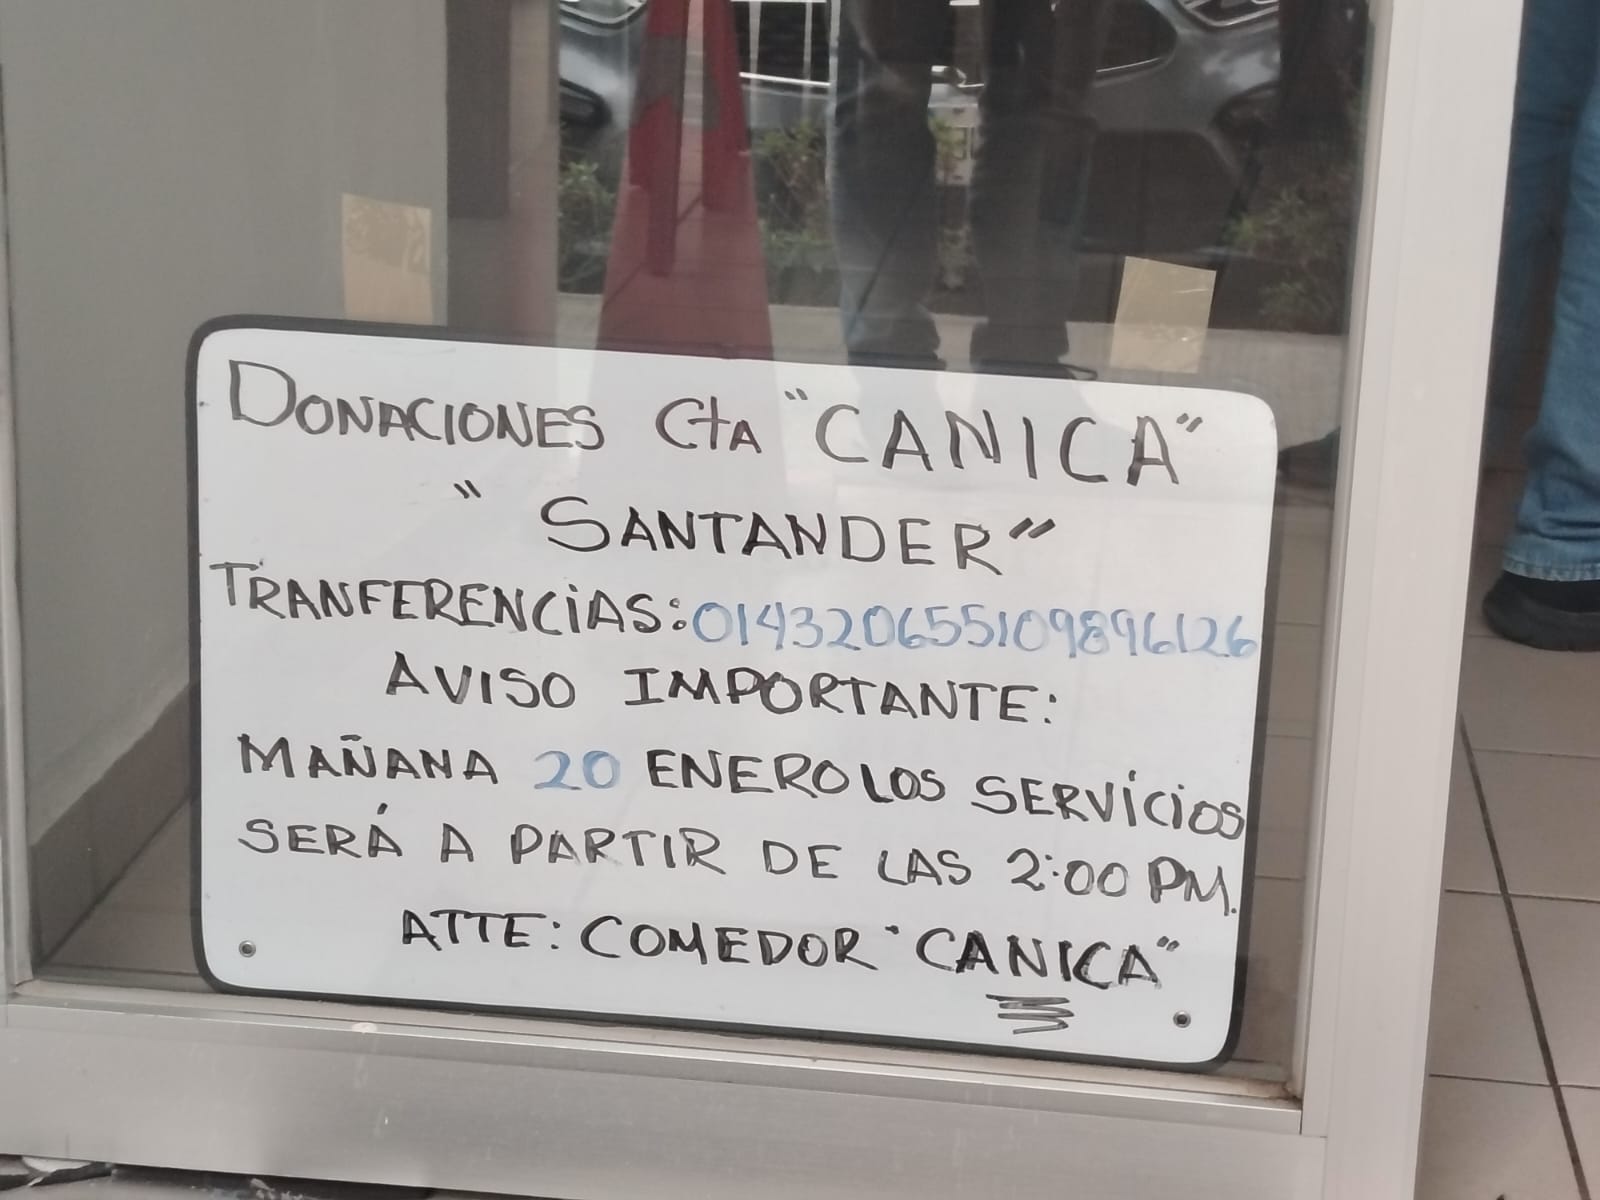 DONACIONES CtA "CANICA"
"SANTANDER"
TRANFERENCIAS: 014320655109896126
AVISO IMPORTANTE:
MAÑANA 20 ENERO LOS SERVICIOS
SERÁ A PARTIR DE LAS 2:00 PM.
ATTE: COMEDOR "CANICA"